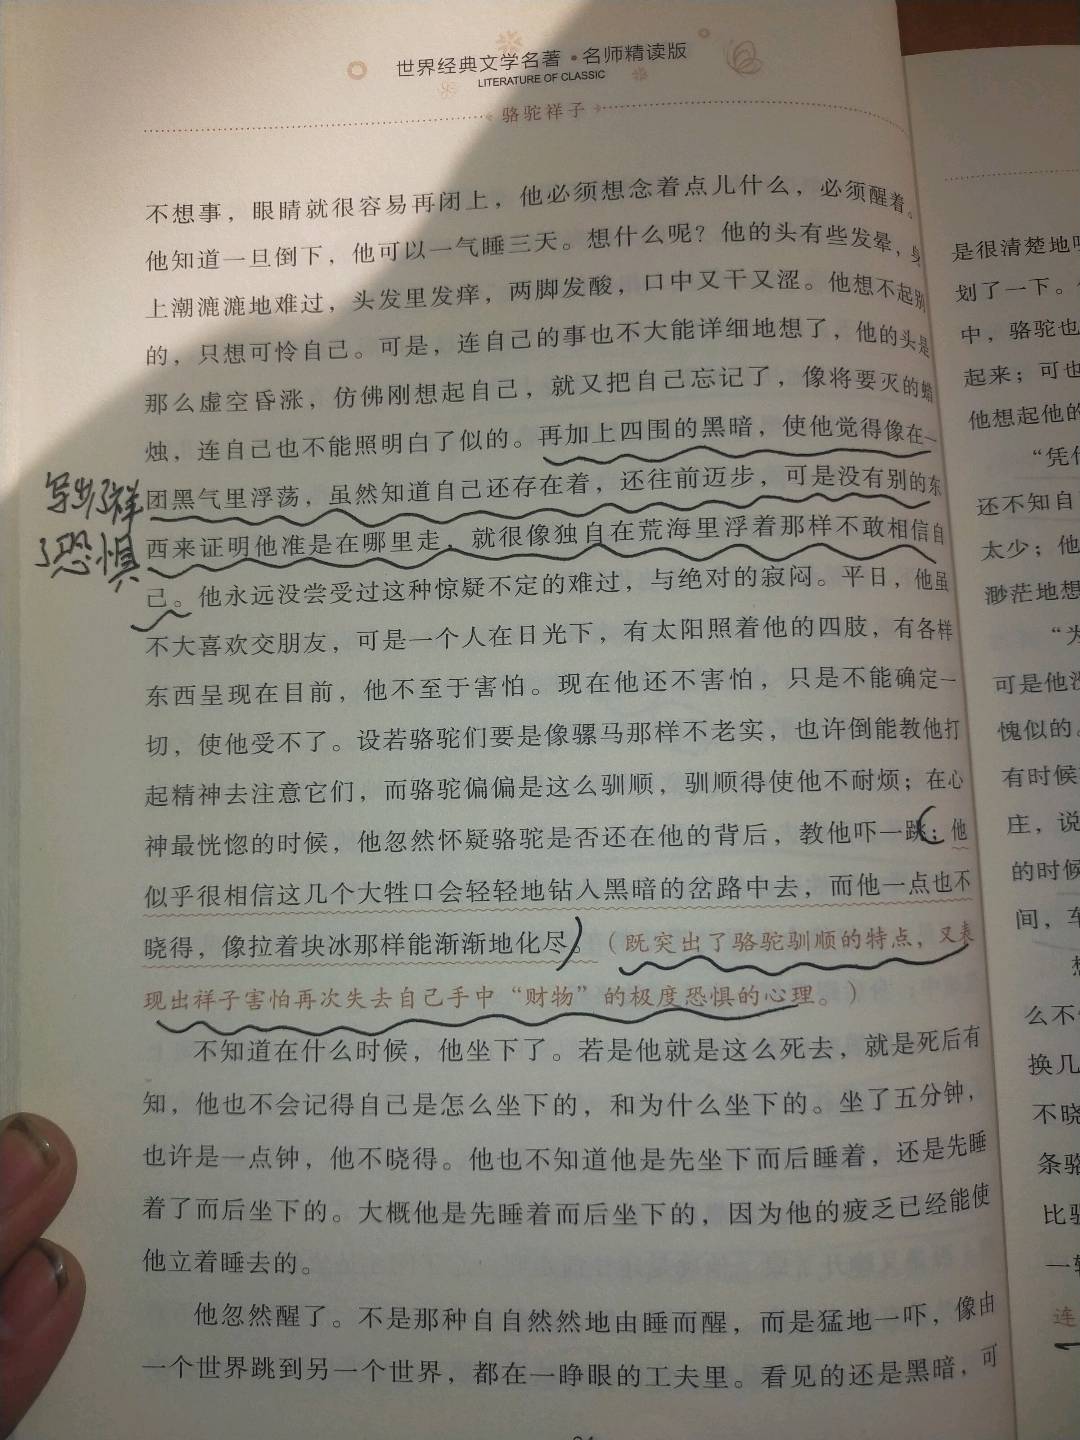 世界经典文学名著·名师精读版
LITERATURE OF CLASSIC
骆驼祥子
不想事，眼睛就很容易再闭上，他必须想念着点儿什么，必须醒着。
他知道一旦倒下，他可以一气睡三天。想什么呢？他的头有些发晕，身
上潮漉漉地难过，头发里发痒，两脚发酸，口中又干又涩。他想不起别
的，只想可怜自己。可是，连自己的事也不大能详细地想了，他的头是
那么虚空昏涨，仿佛刚想起自己，就又把自己忘记了，像将要灭的蜡
烛，连自己也不能照明白了似的。再加上四围的黑暗，使他觉得像在一
团黑气里浮荡，虽然知道自己还存在着，还往前迈步，可是没有别的东
西来证明他准是在哪里走，就很像独自在荒海里浮着那样不敢相信自
己。他永远没尝受过这种惊疑不定的难过，与绝对的寂闷。平日，他虽
不大喜欢交朋友，可是一个人在日光下，有太阳照着他的四肢，有各样
东西呈现在目前，他不至于害怕。现在他还不害怕，只是不能确定一
切，使他受不了。设若骆驼们要是像骡马那样不老实，也许倒能教他打
起精神去注意它们，而骆驼偏偏是这么驯顺，驯顺得使他不耐烦；在心
神最恍惚的时候，他忽然怀疑骆驼是否还在他的背后，教他吓一跳；他
似乎很相信这几个大牲口会轻轻地钻入黑暗的岔路中去，而他一点也不
晓得，像拉着块冰那样能渐渐地化尽。（既突出了骆驼驯顺的特点，又表
现出祥子害怕再次失去自己手中“财物”的极度恐惧的心理。）
不知道在什么时候，他坐下了。若是他就是这么死去，就是死后有
知，他也不会记得自己是怎么坐下的，和为什么坐下的。坐了五分钟，
也许是一点钟，他不晓得。他也不知道他是先坐下而后睡着，还是先睡
着了而后坐下的。大概他是先睡着而后坐下的，因为他的疲乏已经能使
他立着睡去的。
他忽然醒了。不是那种自自然然地由睡而醒，而是猛地一吓，像由
一个世界跳到另一个世界，都在一睁眼的工夫里。看见的还是黑暗，可
祥
恐惧
是很清楚地
划了一下。
中，骆驼也
起来；可也
他想起他的
“凭什
还不知自
太少；他
渺茫地想
“为
可是他
愧似的。
有时候
庄，说
的时候
间，车
么不
换几
不晓
条骆
比骆
一
连